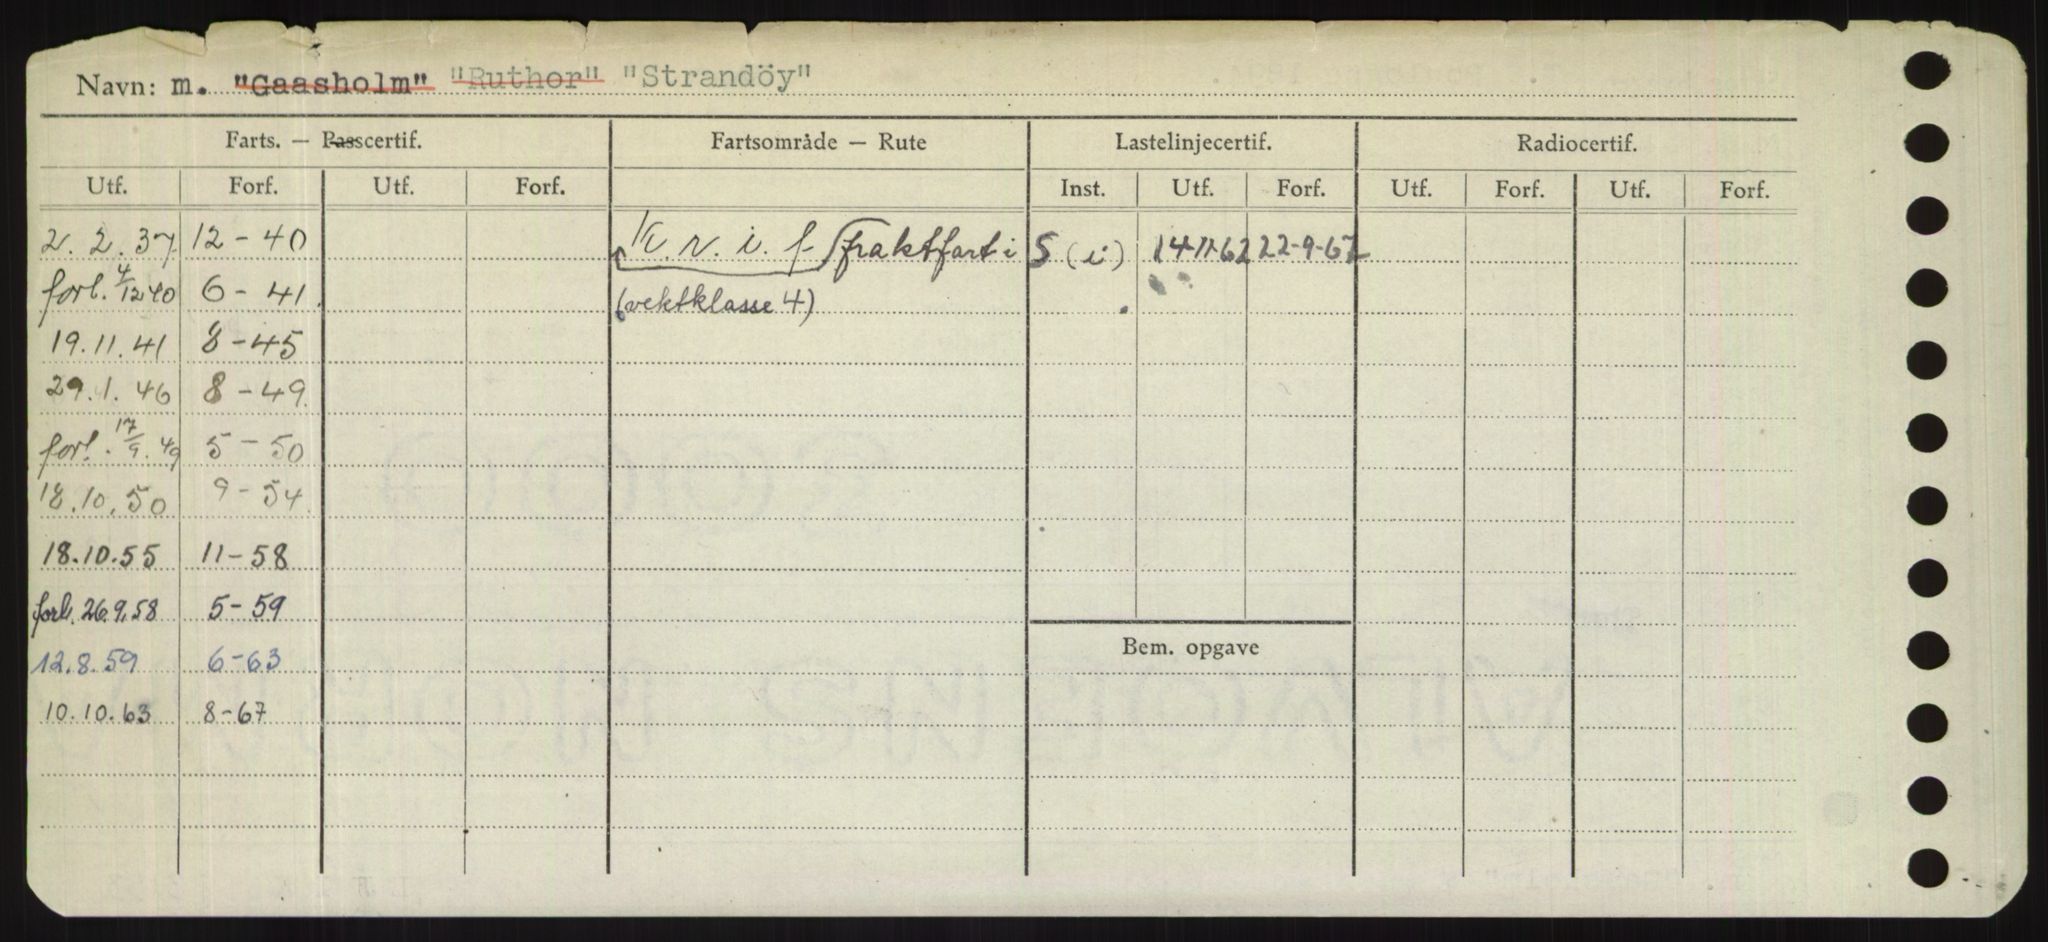 Navn: m. "Gaasholm" "Ruthor" "Strandöy"
Farts. — Passcertif. Fartsområde — Rute Lastelinjecertif. Radiocertif.
Utf. Forf. Utf. Forf. Inst. Utf. Forf. Utf. Forf. Utf. Forf.
2. 2. 37 12-40 K. v. i. f fraktfart i S (i) 14-11-62 22-9-67
forl. 4/12 40 6 - 41 (vektklasse 4)
19. 11. 41 8-45
29. 1. 46 8 - 49
forl. 17/9. 49 5 - 50
18. 10. 50 9 - 54
18.10.55 11-58
forl. 26.9.58 5-59
12. 8. 59 6-63
Bem. opgave
10. 10. 63 8-67